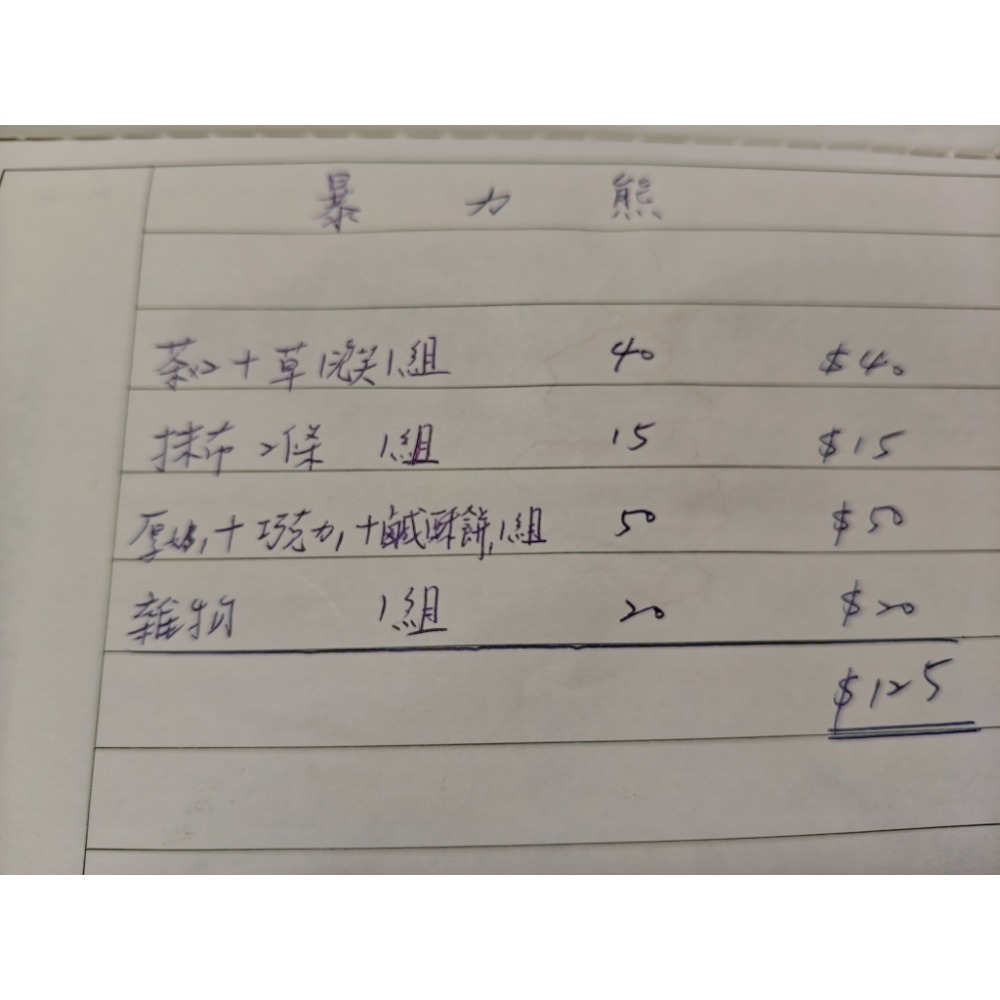 暴力熊
茶心+草㳸1組 40 $40
抹布2條 1組 15 $15
厚奶,+巧克力,+鹹酥餅,1組 50 $50
雜物 1組 20 $20
$125